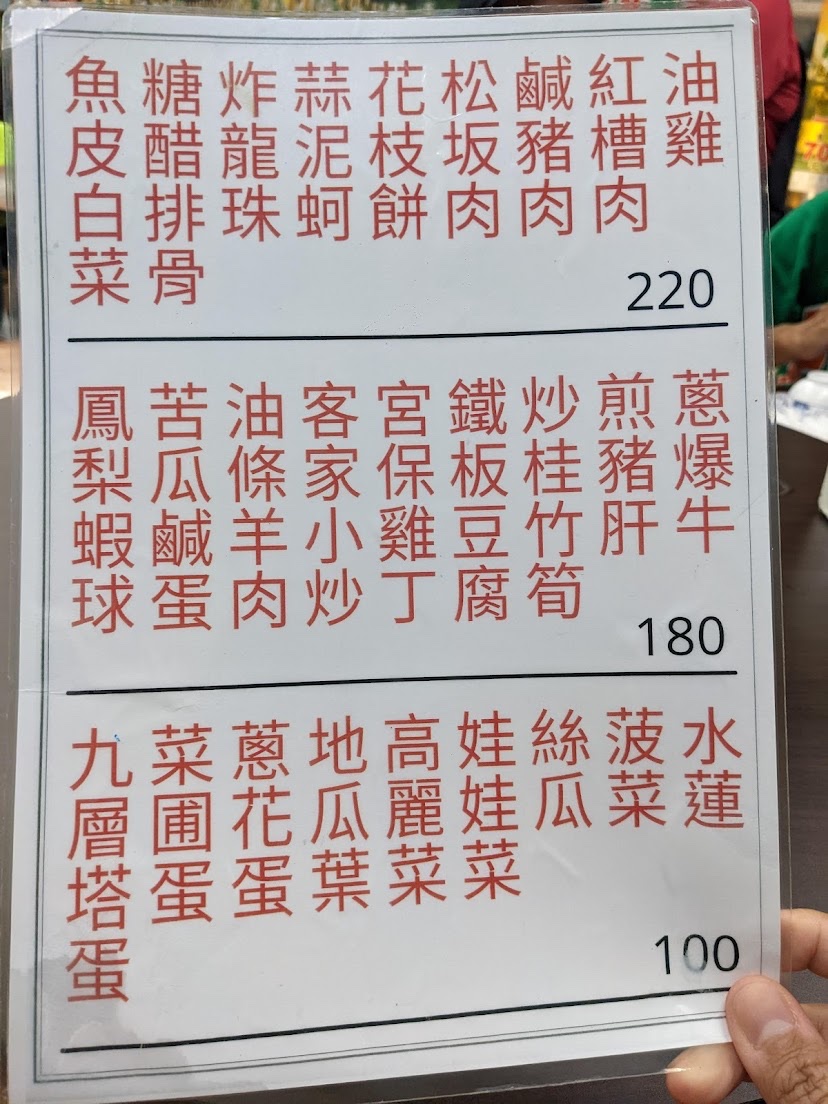 油雞
紅槽肉
鹹豬肉
松坂肉
花枝餅
蒜泥蚵
炸龍珠
糖醋排骨
魚皮白菜
220
蔥爆牛
煎豬肝
炒桂竹筍
鐵板豆腐
宮保雞丁
客家小炒
油條羊肉
苦瓜鹹蛋
鳳梨蝦球
180
水蓮
菠菜
絲瓜
娃娃菜
高麗菜
地瓜葉
蔥花蛋
菜圃蛋
九層塔蛋
100